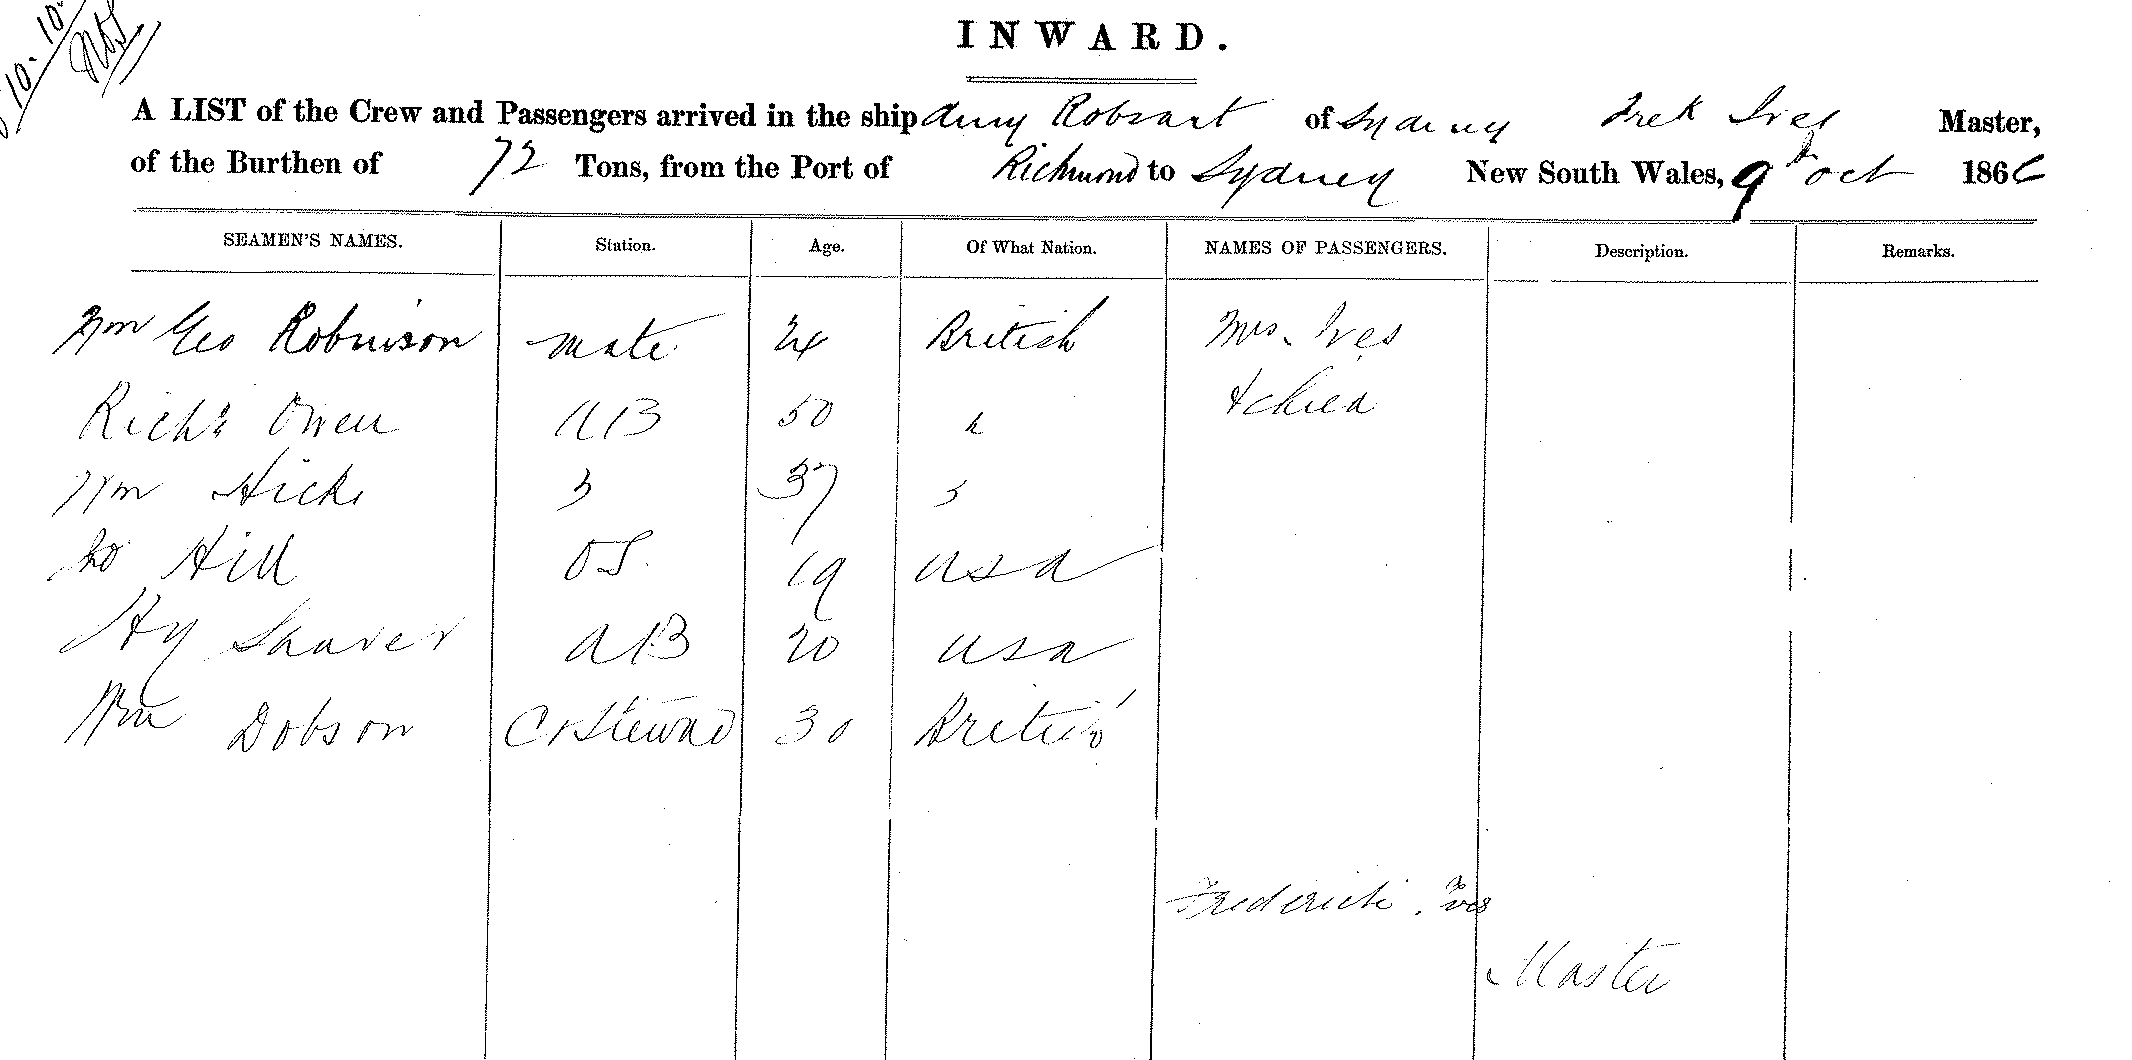 10. 10.
INWARD.
A LIST of the Crew and Passengers arrived in the ship Amy Robsart of Sydney Fred Ives Master,
of the Burthen of 72 Tons, from the Port of Richmond to Sydney New South Wales, 9th Oct 1866
SEAMEN'S NAMES. Station. Age. Of What Nation. NAMES OF PASSENGERS. Description. Remarks.
Wm Geo Robinson Mate 24 British Mrs. Ives
Richd Owen AB 50 " & Child
Wm Hicks " 37 "
Hill OS. 19 USA
Hy AB 20 USA
Wm Dobson C & Steward 30 British
Frederick Ives
Master